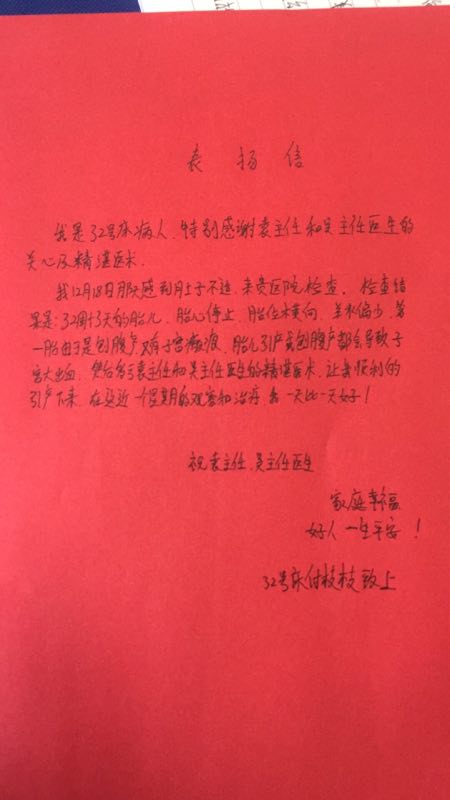 表扬信
我是32号床病人,特别感谢袁主任和吴主任医生的
关心及精湛医术.
我12月18日那天感到肚子不适,来贵医院检查.检查结
果是:32周+3天的胎儿,胎心停止,胎位横向,羊水偏少,第
一胎由于是剖腹产,又有子宫瘢痕,胎儿引产或剖腹产都会导致子
宫大出血,袁主任和吴主任医生的精湛医术,让我顺利的
引产下来,在这近一个星期的观察和治疗,我一天比一天好!
祝袁主任,吴主任医生
家庭幸福
好人一生平安!
32号床付枝枝致上